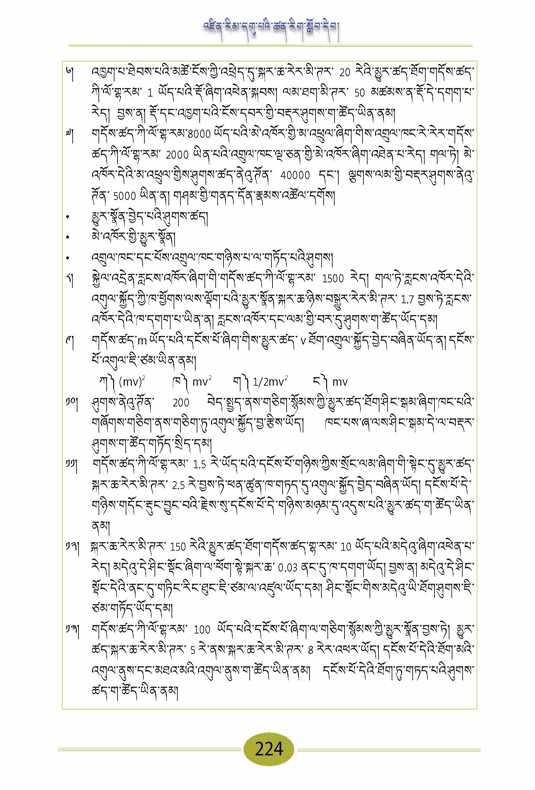 འཛིན་རིམ་དགུ་པའི་ཚན་རིག་སློབ་དེབ།
༦། འཁྱགཔ་ཐེབས་པའི་མཚོ་ངོས་ཀྱི་འཕྲེད་དུ་སྐར་ཆ་རེར་མི་ཊར་ 20 རེའི་མྱུར་ཚད་ཐོག་གདོས་ཚད་
ཀི་ལོ་གྷ་རམ་ 1 ཡོད་པའི་རྡོ་ཞིག་འཕེན་སྐབས། ལམ་ཐག་མི་ཊར་ 50 མཚམས་ན་རྡོ་དེ་དགག་པ་
རེད། བྱས་ན། རྡོ་དང་འཁྱགཔའི་ངོས་དབར་གྱི་བརྡར་ཤུགས་ག་ཚོད་ཡིན་ནམ།
༧། གདོས་ཚད་ཀི་ལོ་གྷ་རམ་8000 ཡོད་པའི་མེ་འཁོར་གྱི་མ་འཕྲུལ་ཞིག་གིས་འགྲུལ་ཁང་རེ་རེར་གདོས་
ཚད་ཀི་ལོ་གྷ་རམ་ 2000 ཡིན་པའི་འགྲུལ་ཁང་ལྔ་ཅན་གྱི་མེ་འཁོར་ཞིག་འཐེན་པ་རེད། གལ་ཏེ། མེ་
འཁོར་དེའི་མ་འཕྲུལ་གྱིས་ཤུགས་ཚད་ནེའུ་ཊོན་ 40000 དང་། ལྕགས་ལམ་གྱི་བརྡར་ཤུགས་ནེའུ་
ཊོན་ 5000 ཡིན་ན། གཤམ་གྱི་གནད་དོན་རྣམས་འཚོལ་དགོས།
• མྱུར་སྣོན་བྱེད་པའི་ཤུགས་ཚད།
• མེ་འཁོར་གྱི་མྱུར་སྣོན།
• འགྲུལ་ཁང་དང་པོས་འགྲུལ་ཁང་གཉིས་པ་ལ་གཏོད་པའི་ཤུགས།
༨། སྐྱེལ་འདྲེན་རླངས་འཁོར་ཞིག་གི་གདོས་ཚད་ཀི་ལོ་གྷ་རམ་ 1500 རེད། གལ་ཏེ་རླངས་འཁོར་དེའི་
འགུལ་སྐྱོད་ཀྱི་ཁ་ཕྱོགས་ལས་ལྡོག་པའི་མྱུར་སྣོན་སྐར་ཆ་ཉིས་བསྒྱུར་རེར་མི་ཊར་ 1.7 བྱས་ཏེ་རླངས་
འཁོར་དེའི་ཁ་དགག་པ་ཡིན་ན། རླངས་འཁོར་དང་ལམ་གྱི་བར་དུ་ཤུགས་ག་ཚོད་ཡོད་དམ།
༩། གདོས་ཚད་m ཡོད་པའི་དངོས་པོ་ཞིག་གིས་མྱུར་ཚད་ v ཐོག་འགུལ་སྐྱོད་བྱེད་བཞིན་ཡོད་ན། དངོས་
པོ་འགུལ་ཇི་ཙམ་ཡིན་ནམ།
ཀ༽ (mv)² ཁ༽ mv² ག༽ 1/2mv² ང༽ mv
༡༠། ཤུགས་ནེའུ་ཊོན་ 200 བེད་སྤྱད་ནས་གཅིག་སྙོམས་ཀྱི་མྱུར་ཚད་ཐོག་ཤིང་སྒམ་ཞིག་ཁང་པའི་
གཞོགས་གཅིག་ནས་གཅིག་ཏུ་འགུལ་སྐྱོད་བྱ་རྩིས་ཡོད། ཁང་པས་ཞལ་ས་ཤིང་སྒམ་དེ་ལ་བརྡར་
ཤུགས་ག་ཚོད་གཏོད་སྲིད་དམ།
༡༡། གདོས་ཚད་ཀི་ལོ་གྷ་རམ་ 1.5 རེ་ཡོད་པའི་དངོས་པོ་གཉིས་ཀྱིས་སྲོང་ལམ་ཞིག་གི་སྟེང་དུ་མྱུར་ཚད་
སྐར་ཆ་རེར་མི་ཊར་ 2.5 རེ་བྱས་ཏེ་ཕན་ཚུན་ཁ་གཏད་དུ་འགུལ་སྐྱོད་བྱེད་བཞིན་ཡོད། དངོས་པོ་དེ་
གཉིས་གདོང་རྡུང་བྱུང་བའི་རྗེས་སུ་དངོས་པོ་དེ་གཉིས་མཉམ་དུ་འདུས་པའི་མྱུར་ཚད་ག་ཚོད་ཡིན་
ནམ།
༡༢། སྐར་ཆ་རེར་མི་ཊར་ 150 རེའི་མྱུར་ཚད་ཐོག་གདོས་ཚད་གྷ་རམ་ 10 ཡོད་པའི་མདེའུ་ཞིག་འཕེན་པ་
རེད། མདེའུ་དེ་ཤིང་སྡོང་ཞིག་ལ་ཕོག་སྟེ་སྐར་ཆ་ 0.03 ནང་དུ་ཁ་དགག་ཡོད། བྱས་ན། མདེའུ་དེ་ཤིང་
སྡོང་དེའི་ནང་དུ་གཏིང་རིང་ཐུང་ཇི་ཙམ་ལ་འཛུལ་ཡོད་དམ། ཤིང་སྡོང་གིས་མདེའུ་ཡི་ཐོག་ཤུགས་ཇི་
ཙམ་གཏོད་ཡོད་དམ།
༡༣། གདོས་ཚད་ཀི་ལོ་གྷ་རམ་ 100 ཡོད་པའི་དངོས་པོ་ཞིག་ལ་གཅིག་སྙོམས་ཀྱི་མྱུར་སྣོན་བྱས་ཏེ། མྱུར་
ཚད་སྐར་ཆ་རེར་མི་ཊར་ 5 རེ་ནས་སྐར་ཆ་རེར་མི་ཊར་ 8 རེར་འཕར་ཡོད། དངོས་པོ་དེའི་ཐོག་མའི་
འགུལ་ནུས་དང་མཐའ་མའི་འགུལ་ནུས་ག་ཚོད་ཡིན་ནམ། དངོས་པོ་དེའི་ཐོག་ཏུ་གཏད་པའི་ཤུགས་
ཚད་ག་ཚོད་ཡིན་ནམ།
224